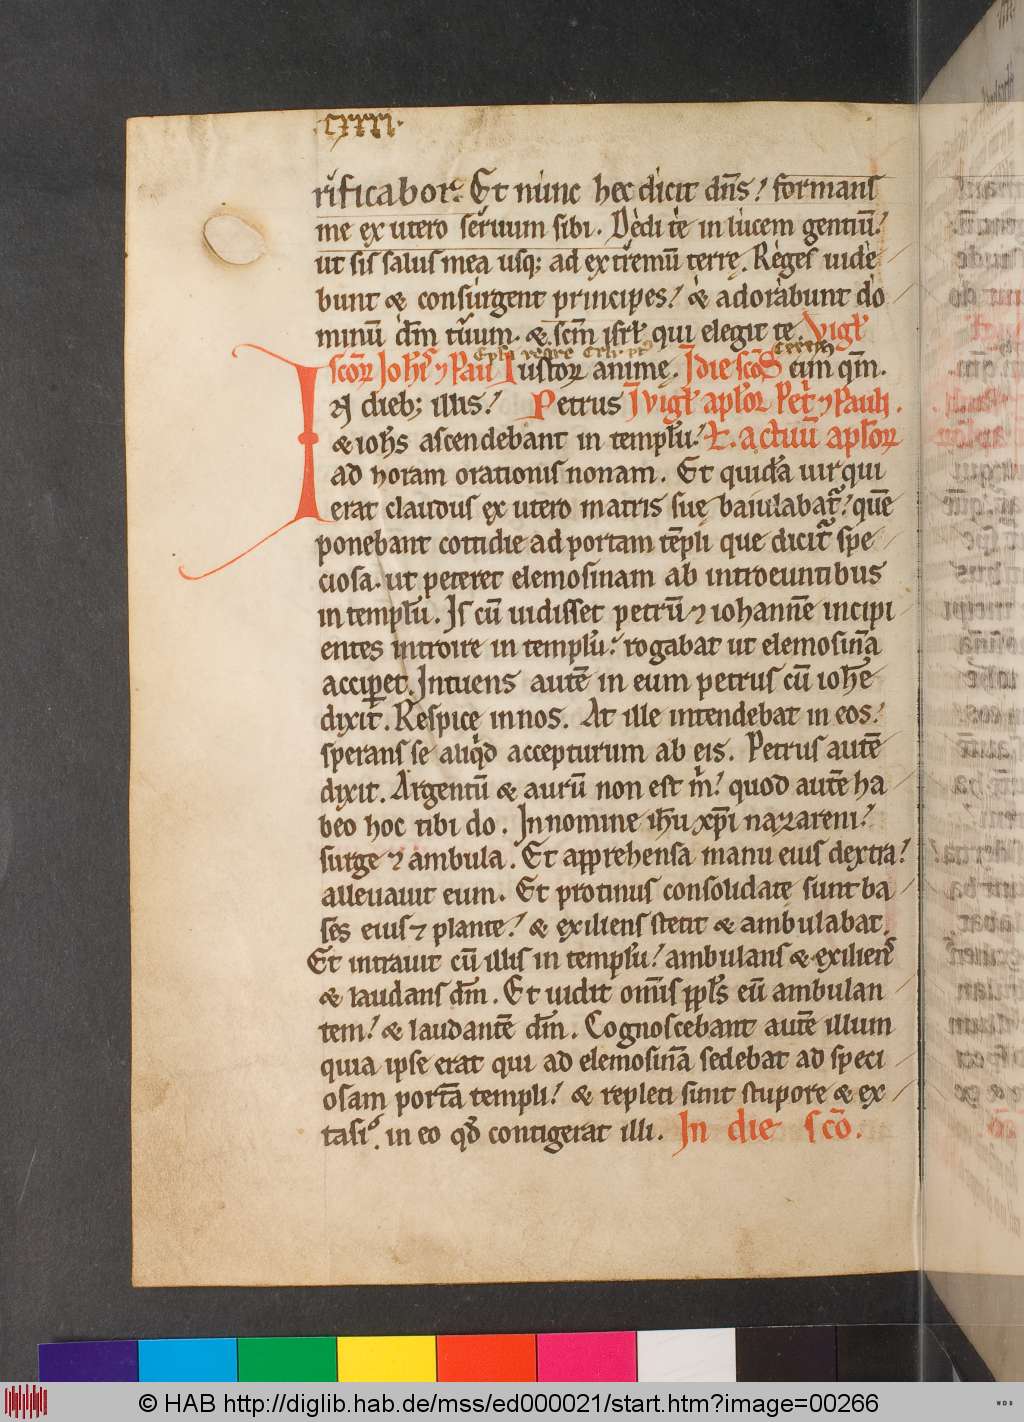 ·cxxxi·
rificabor. Et nunc hec dicit dn̄s! formans
me ex utero seruum sibi. Dedi te in lucem gentiū!
ut sis salus mea usq; ad extremū terrę. Reges uide
bunt & consurgent principes! & adorabunt do
minū dm̄ tuum. & scm̄ isrł qui elegit te. Vigł
scōꝝ Ioħis ⁊ Pauli Iustoꝝ animę. In die scōꝝ cum qm̄.
In dieb; illis! Petrus In vigł apłoꝝ Petri ⁊ Pauli.
& ioħs ascendebant in templū! ł. actuū apłoꝝ
ad horam orationis nonam. Et quidā uir qui
erat claudus ex utero matris suę baiulabat᷑! quē
ponebant cottidie ad portam tēpli que dicit᷑ spe
ciosa. ut peteret elemosinam ab introeuntibus
in templū. Is cū uidisset petrū ⁊ iohannē incipi
entes introire in templū! rogabat ut elemosinā
acciꝑet. Intuens autē in eum petrus cū ioħe
dixit. Respice in nos. At ille intendebat in eos!
sperans se aliqd accepturum ab eis. Petrus autē
dixit. Argentū & aurū non est m! quod autē ha
beo hoc tibi do. In nomine ihu xpi nazareni!
surge ⁊ ambula. Et apprehensa manu eius dextra!
alleuauit eum. Et protinus consolidatę sunt ba
ses eius ⁊ plante! & exiliens stetit & ambulabat.
Et intrauit cū illis in templū! ambulans & exiliens
& laudans dm̄. Et uidit omīs ppłs eū ambulan
tem! & laudantē dm̄. Cognoscebant autē illum
quia ipse erat qui ad elemosinā sedebat ad speci
osam portā templi! & repleti sunt stupore & ex
tasi. in eo qd contigerat illi. In die scō.
© HAB http://diglib.hab.de/mss/ed000021/start.htm?image=00266